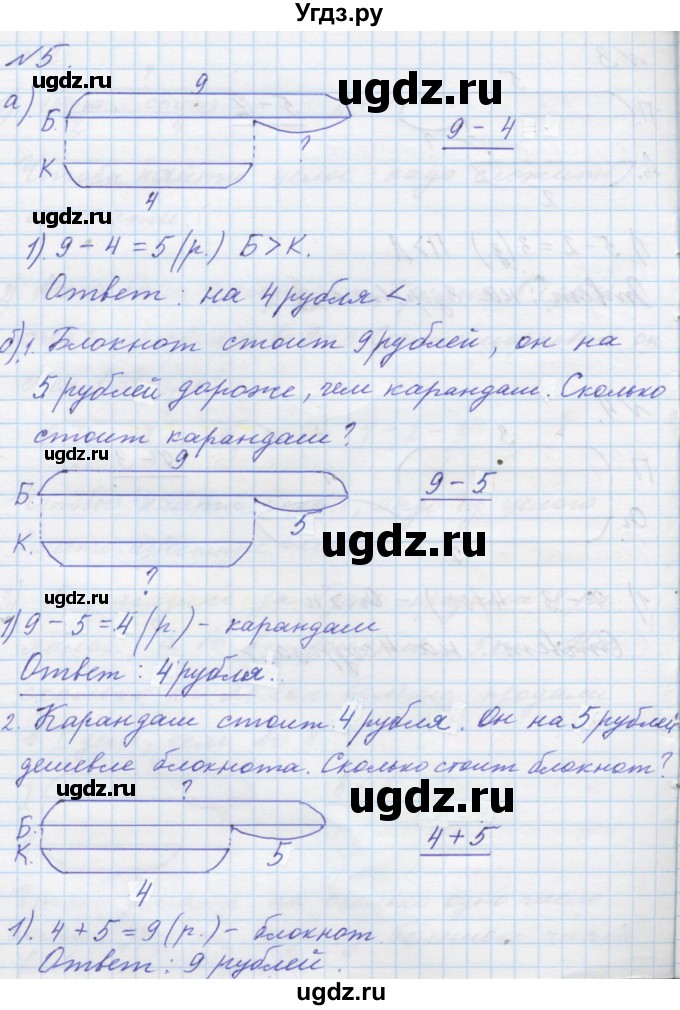 Угдз.ру
№5.
ugdz.ru
9
ugdz.ru
а)
Б.
?
9 - 4
К
4
ugdz.ru
ugdz.ru
1). 9 - 4 = 5 (р.) Б > К.
Ответ: на 4 рубля <
ugdz.ru
б) 1. Блокнот стоит 9 рублей, он на
5 рублей дороже, чем карандаш. Сколько
стоит карандаш?
ugdz.ru
9
Б.
9 - 5
5
ugdz.ru
ugdz.ru
К.
?
ugdz.ru
1) 9 - 5 = 4 (р.) - карандаш
Ответ: 4 рубля.
ugdz.ru
2. Карандаш стоит 4 рубля. Он на 5 рублей
дешевле блокнота. Сколько стоит блокнот?
?
ugdz.ru
ugdz.ru
Б.
4 + 5
К.
5
4
ugdz.ru
1). 4 + 5 = 9 (р.) - блокнот
Ответ: 9 рублей.
ugdz.ru